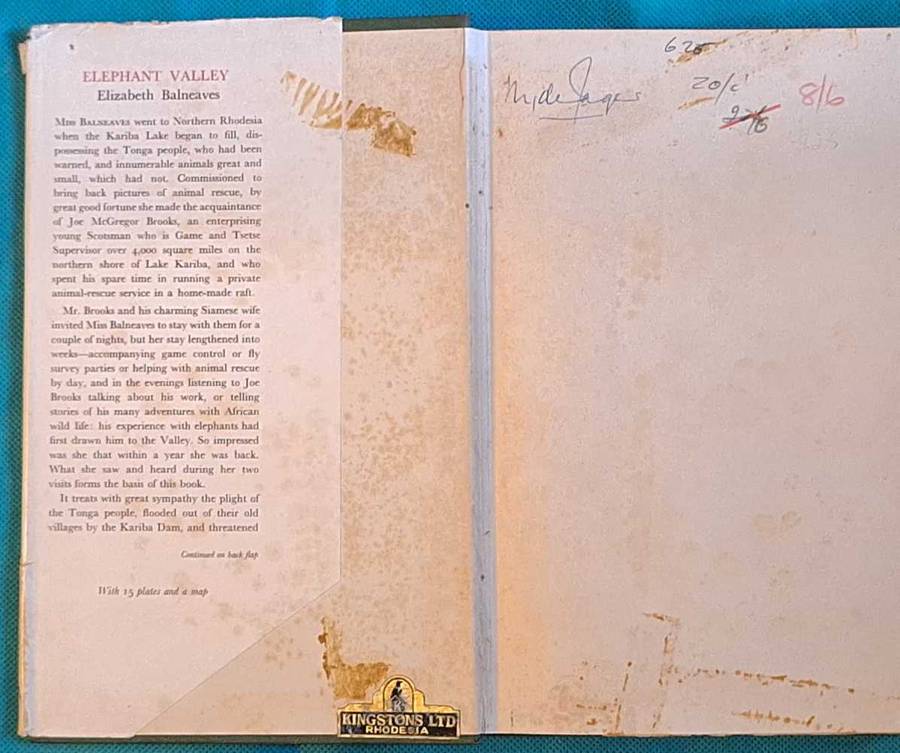 ELEPHANT VALLEY
Elizabeth Balneaves
Miss Balneaves went to Northern Rhodesia
when the Kariba Lake began to fill, dis-
possessing the Tonga people, who had been
warned, and innumerable animals great and
small, which had not. Commissioned to
bring back pictures of animal rescue, by
great good fortune she made the acquaintance
of Joe McGregor Brooks, an enterprising
young Scotsman who is Game and Tsetse
Supervisor over 4,000 square miles on the
northern shore of Lake Kariba, and who
spent his spare time in running a private
animal-rescue service in a home-made raft.
Mr. Brooks and his charming Siamese wife
invited Miss Balneaves to stay with them for a
couple of nights, but her stay lengthened into
weeks—accompanying game control or fly
survey parties or helping with animal rescue
by day, and in the evenings listening to Joe
Brooks talking about his work, or telling
stories of his many adventures with African
wild life: his experience with elephants had
first drawn him to the Valley. So impressed
was she that within a year she was back.
What she saw and heard during her two
visits forms the basis of this book.
It treats with great sympathy the plight of
the Tonga people, flooded out of their old
villages by the Kariba Dam, and threatened
Continued on back flap
With 15 plates and a map
KINGSTONS LTD
RHODESIA
8/6